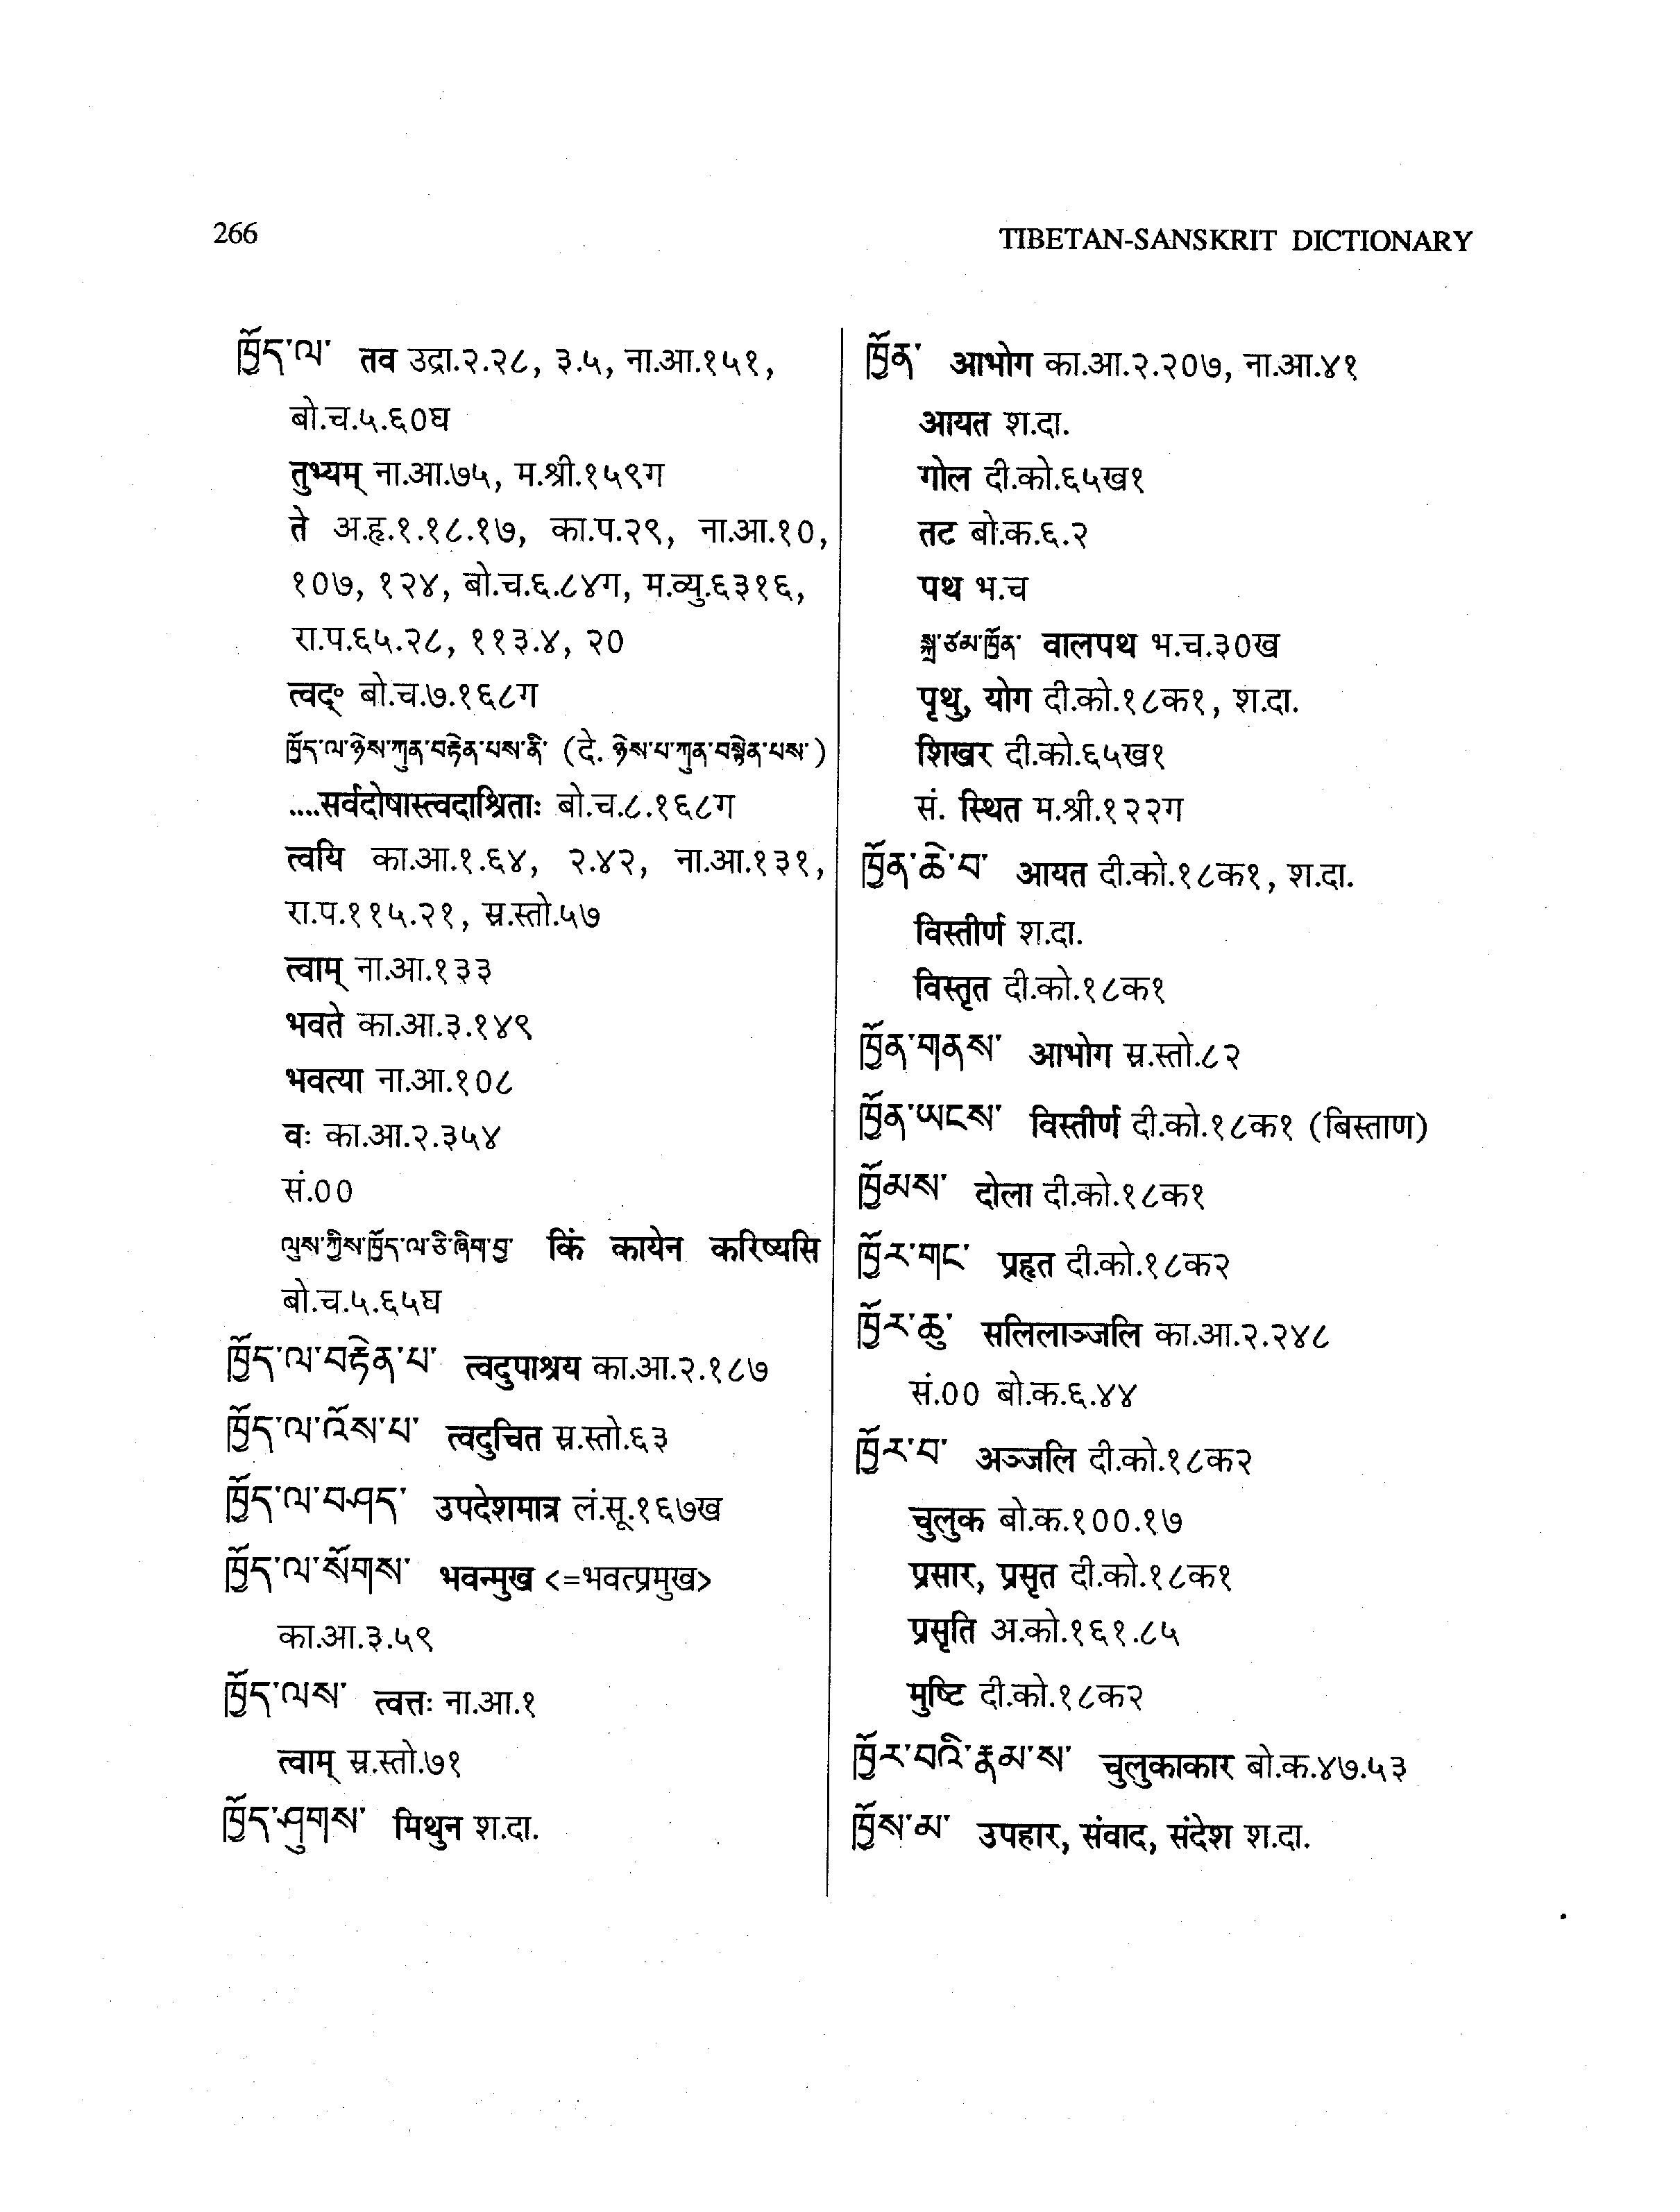 266
TIBETAN-SANSKRIT DICTIONARY
ཁྱོད་ལ་ तव उद्रा.२.२८, ३.५, ना.आ.१५१,
बो.च.५.६०घ
तुभ्यम् ना.आ.७५, म.श्री.१५९ग
ते अ.हृ.१.१८.१७, का.प.२९, ना.आ.१०,
१०७, १२४, बो.च.६.८४ग, म.व्यु.६३१६,
रा.प.६५.२८, ११३.४, २०
त्वद्॰ बो.च.७.१६८ग
ཁྱོད་ལ་ཉེས་ཀུན་བརྟེན་པས་ནི་ (दे. ཉེས་པ་ཀུན་བསྟེན་པས་)
....सर्वदोषास्त्वदाश्रिताः बो.च.८.१६८ग
त्वयि का.आ.१.६४, २.४२, ना.आ.१३१,
रा.प.११५.२१, स्र.स्तो.५७
त्वाम् ना.आ.१३३
भवते का.आ.३.१४९
भवत्या ना.आ.१०८
वः का.आ.२.३५४
सं.००
ལུས་ཀྱིས་ཁྱོད་ལ་ཅི་ཞིག་བྱ་ किं कायेन करिष्यसि
बो.च.५.६५घ
ཁྱོད་ལ་བརྟེན་པ་ त्वदुपाश्रय का.आ.२.१८७
ཁྱོད་ལ་འོས་པ་ त्वदुचित स्र.स्तो.६३
ཁྱོད་ལ་བཤད་ उपदेशमात्र लं.सू.१६७ख
ཁྱོད་ལ་སོགས་ भवन्मुख <=भवत्प्रमुख>
का.आ.३.५९
ཁྱོད་ལས་ त्वत्तः ना.आ.१
त्वाम् स्र.स्तो.७१
ཁྱོད་ཤུགས་ मिथुन श.दा.
ཁྱོན་ आभोग का.आ.२.२०७, ना.आ.४१
आयत श.दा.
गोल दी.को.६५ख१
तट बो.क.६.२
पथ भ.च
སྐྲ་ཙམ་ཁྱོན་ वालपथ भ.च.३०ख
पृथु, योग दी.को.१८क१, श.दा.
शिखर दी.को.६५ख१
सं. स्थित म.श्री.१२२ग
ཁྱོན་ཆེ་བ་ आयत दी.को.१८क१, श.दा.
विस्तीर्ण श.दा.
विस्तृत दी.को.१८क१
ཁྱོན་གནས་ आभोग स्र.स्तो.८२
ཁྱོན་ཡངས་ विस्तीर्ण दी.को.१८क१ (बिस्ताण)
ཁྱོམས་ दोला दी.को.१८क१
ཁྱོར་གང་ प्रहृत दी.को.१८क२
ཁྱོར་ཆུ་ सलिलाञ्जलि का.आ.२.२४८
सं.०० बो.क.६.४४
ཁྱོར་བ་ अञ्जलि दी.को.१८क२
चुलुक बो.क.१००.१७
प्रसार, प्रसृत दी.को.१८क१
प्रसृति अ.को.१६१.८५
मुष्टि दी.को.१८क२
ཁྱོར་བའི་རྣམ་ས་ चुलुकाकार बो.क.४७.५३
ཁྱོས་མ་ उपहार, संवाद, संदेश श.दा.